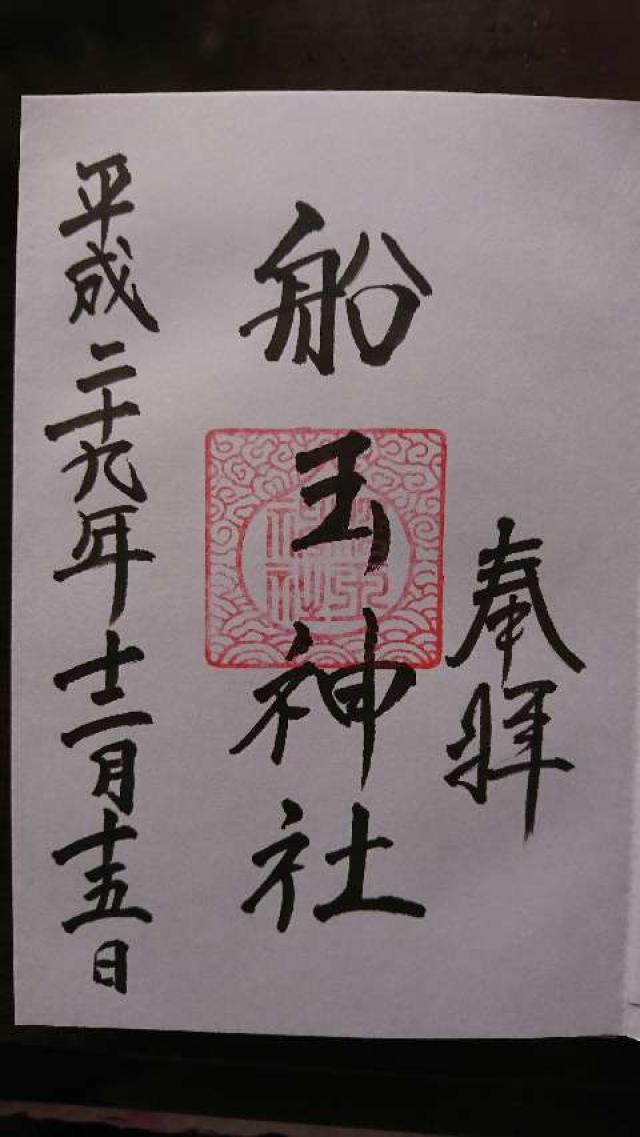 奉拝
船玉神社
平成二十九年十二月十五日